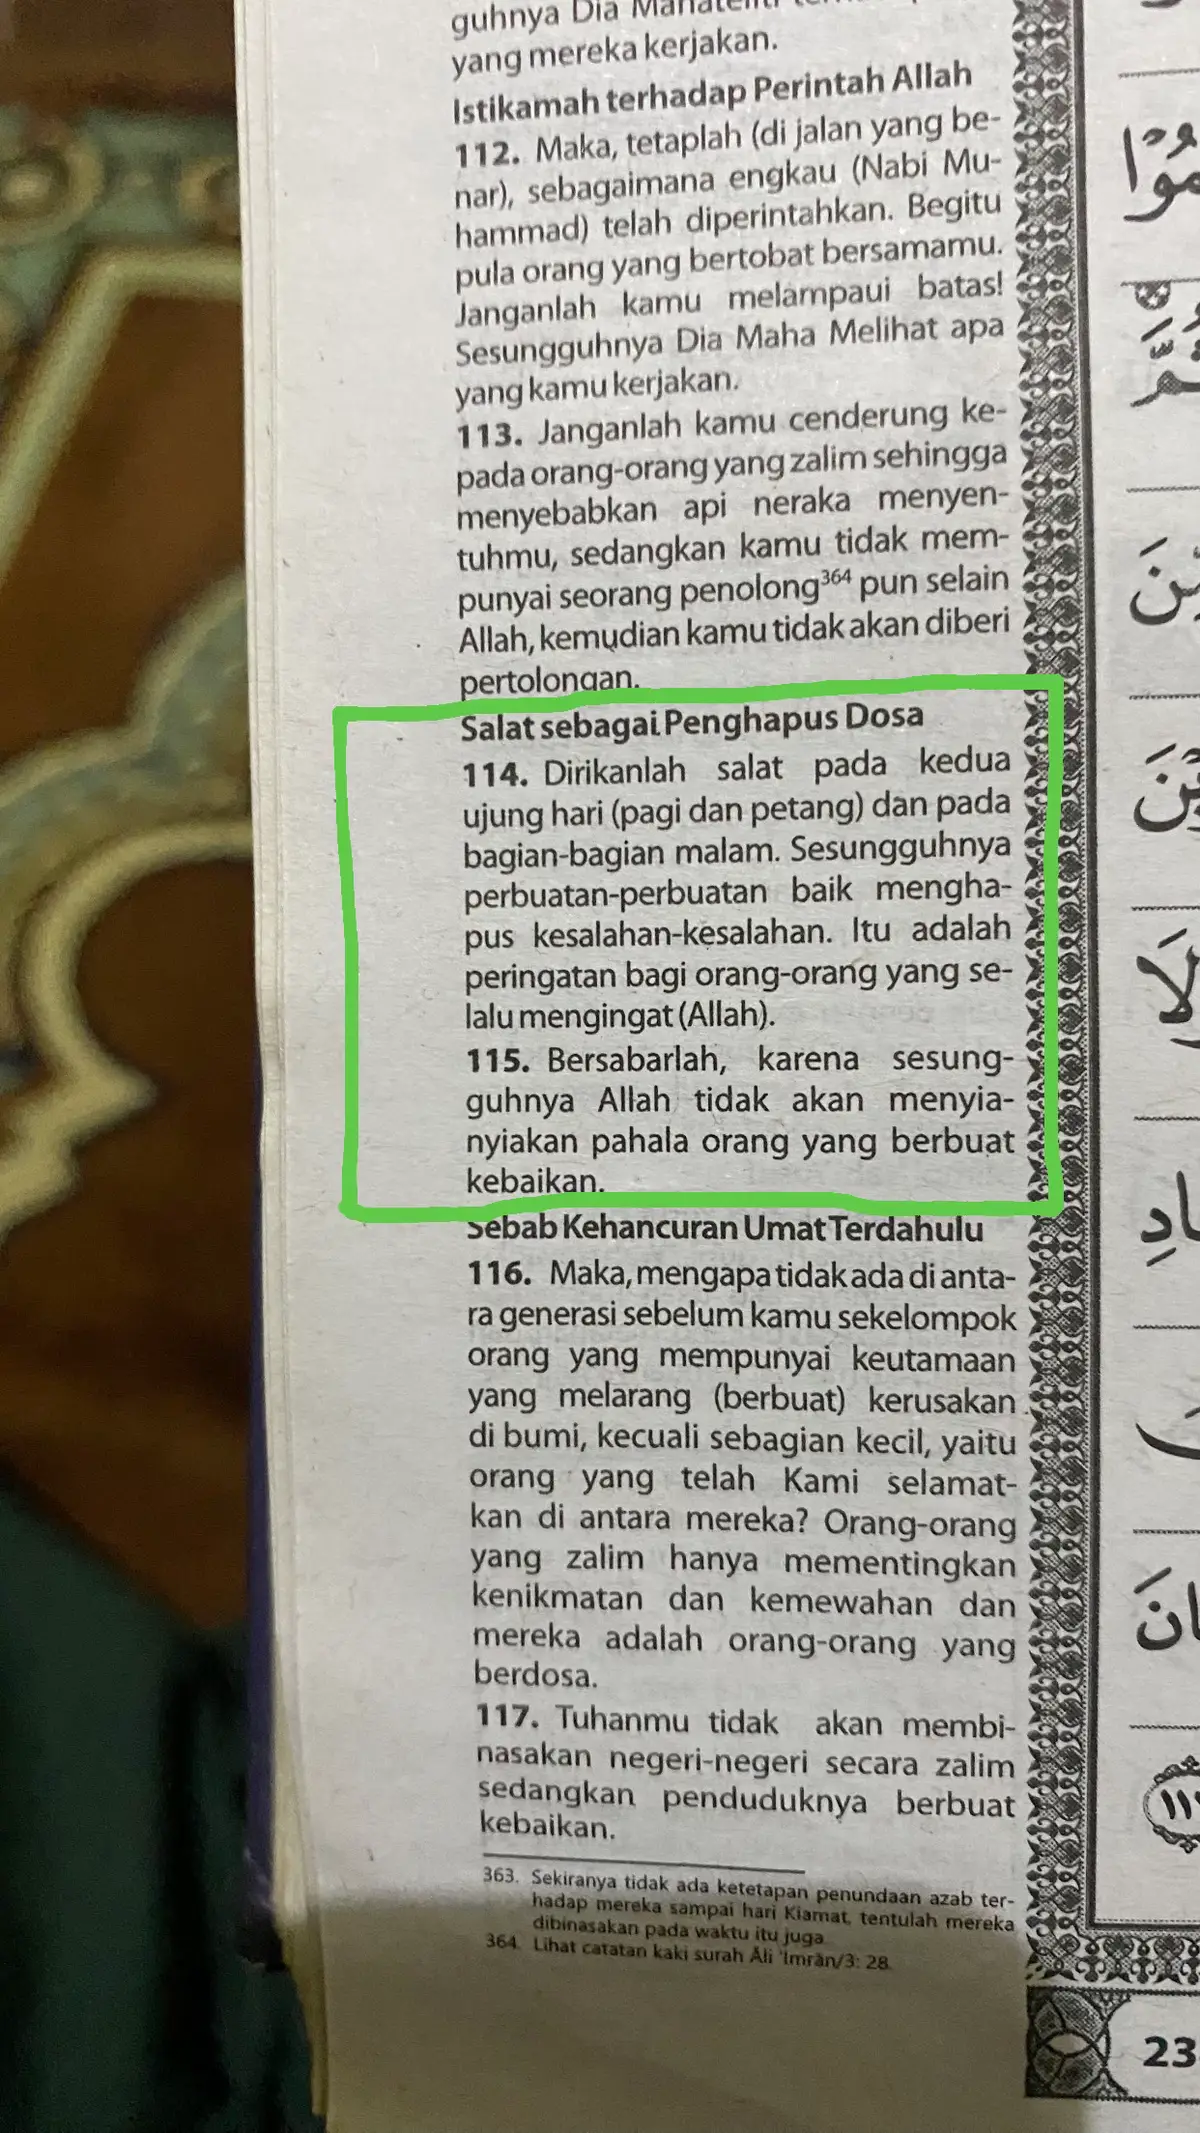 guhnya Dia
yang mereka kerjakan.
Istikamah terhadap Perintah Allah
112. Maka, tetaplah (di jalan yang be-
nar), sebagaimana engkau (Nabi Mu-
hammad) telah diperintahkan. Begitu
pula orang yang bertobat bersamamu.
Janganlah kamu melampaui batas!
Sesungguhnya Dia Maha Melihat apa
yang kamu kerjakan.
113. Janganlah kamu cenderung ke-
pada orang-orang yang zalim sehingga
menyebabkan api neraka menyen-
tuhmu, sedangkan kamu tidak mem-
punyai seorang penolong³⁶⁴ pun selain
Allah, kemudian kamu tidak akan diberi
pertolongan.
Salat sebagai Penghapus Dosa
114. Dirikanlah salat pada kedua
ujung hari (pagi dan petang) dan pada
bagian-bagian malam. Sesungguhnya
perbuatan-perbuatan baik mengha-
pus kesalahan-kesalahan. Itu adalah
peringatan bagi orang-orang yang se-
lalu mengingat (Allah).
115. Bersabarlah, karena sesung-
guhnya Allah tidak akan menyia-
nyiakan pahala orang yang berbuat
kebaikan.
Sebab Kehancuran Umat Terdahulu
116. Maka, mengapa tidak ada di anta-
ra generasi sebelum kamu sekelompok
orang yang mempunyai keutamaan
yang melarang (berbuat) kerusakan
di bumi, kecuali sebagian kecil, yaitu
orang yang telah Kami selamat-
kan di antara mereka? Orang-orang
yang zalim hanya mementingkan
kenikmatan dan kemewahan dan
mereka adalah orang-orang yang
berdosa.
117. Tuhanmu tidak akan membi-
nasakan negeri-negeri secara zalim
sedangkan penduduknya berbuat
kebaikan.
363. Sekiranya tidak ada ketetapan penundaan azab ter-
hadap mereka sampai hari Kiamat, tentulah mereka
dibinasakan pada waktu itu juga.
364. Lihat catatan kaki surah Āli 'Imrān/3: 28.
23